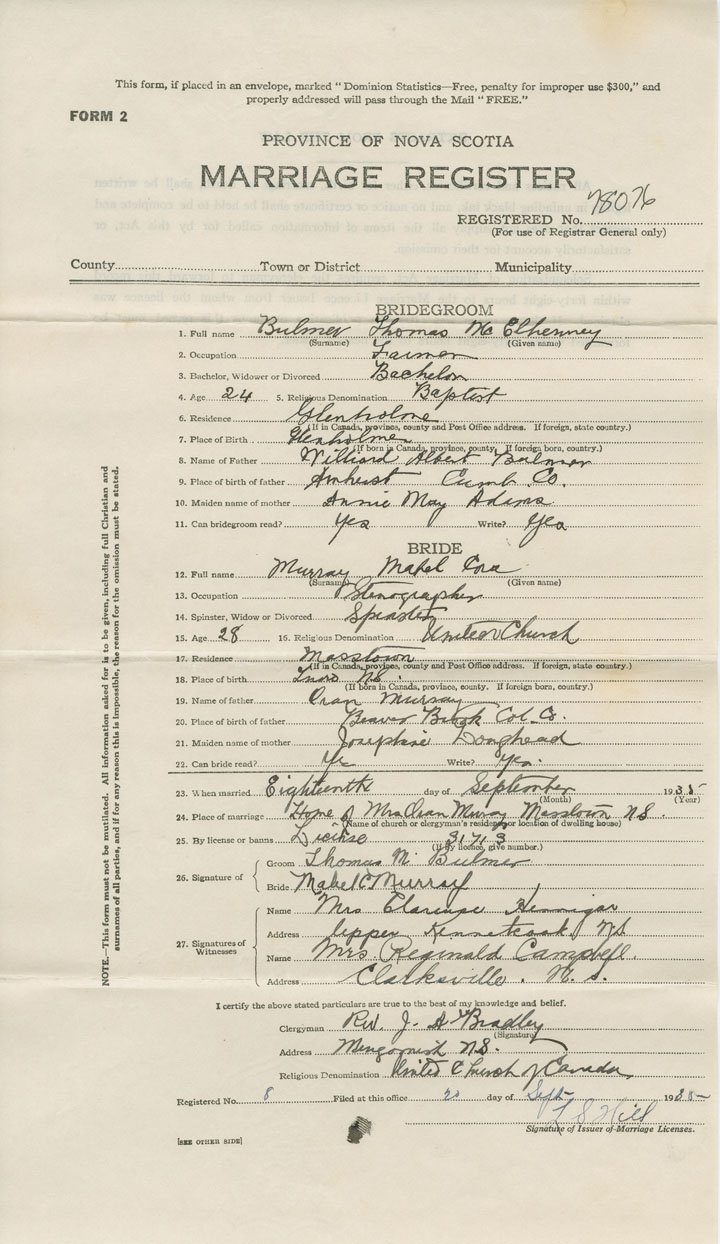 This form, if placed in an envelope, marked "Dominion Statistics—Free, penalty for improper use $300," and
properly addressed will pass through the Mail "FREE."
FORM 2
PROVINCE OF NOVA SCOTIA
MARRIAGE REGISTER
REGISTERED No. 78076
(For use of Registrar General only)
County Town or District Municipality
BRIDEGROOM
1. Full name Bulmer Thomas Mc Elhenney
(Surname) (Given name)
2. Occupation Farmer
3. Bachelor, Widower or Divorced Bachelor
4. Age 24 5. Religious Denomination Baptist
6. Residence Glenholme
(If in Canada, province, county and Post Office address. If foreign, state country.)
7. Place of Birth Glenholme
(If born in Canada, province, county. If foreign born, country.)
8. Name of Father Williard Albert Bulmer
9. Place of birth of father Amherst Cumb. Co.
10. Maiden name of mother Annie May Adams
11. Can bridegroom read? Yes Write? Yes
BRIDE
12. Full name Murray Mabel Cora
(Surname) (Given name)
13. Occupation Stenographer
14. Spinster, Widow or Divorced Spinster
15. Age 28 16. Religious Denomination United Church
17. Residence Masstown
(If in Canada, province, county and Post Office address. If foreign, state country.)
18. Place of birth Truro N.S.
(If born in Canada, province, county. If foreign born, country.)
19. Name of father Oran Murray
20. Place of birth of father Beaver Brook Col. Co.
21. Maiden name of mother Josephine Doughead
22. Can bride read? Yes Write? Yes.
23. When married Eighteenth day of September 1935
(Month) (Year)
24. Place of marriage Home of Mrs Oran Murray Masstown N.S.
(Name of church or clergyman's residence or location of dwelling house)
25. By license or banns License 31713
(If by licence, give number.)
26. Signature of
Groom Thomas M. Bulmer
Bride Mabel C Murray
27. Signatures of Witnesses
Name Mrs Clarence Hennigar
Address Upper Kennetcook, NS
Name Mrs. Reginald Campbell.
Address Clarksville. N. S.
I certify the above stated particulars are true to the best of my knowledge and belief.
Clergyman Rev. J. A Bradley
(Signature)
Address N.S.
Religious Denomination United Church of Canada
Registered No. 8 Filed at this office 20 day of Sept 1935
L S Hill
Signature of Issuer of Marriage Licenses.
[SEE OTHER SIDE]
NOTE.—This form must not be mutilated. All information asked for is to be given, including full Christian and
surnames of all parties, and if for any reason this is impossible, the reason for the omission must be stated.